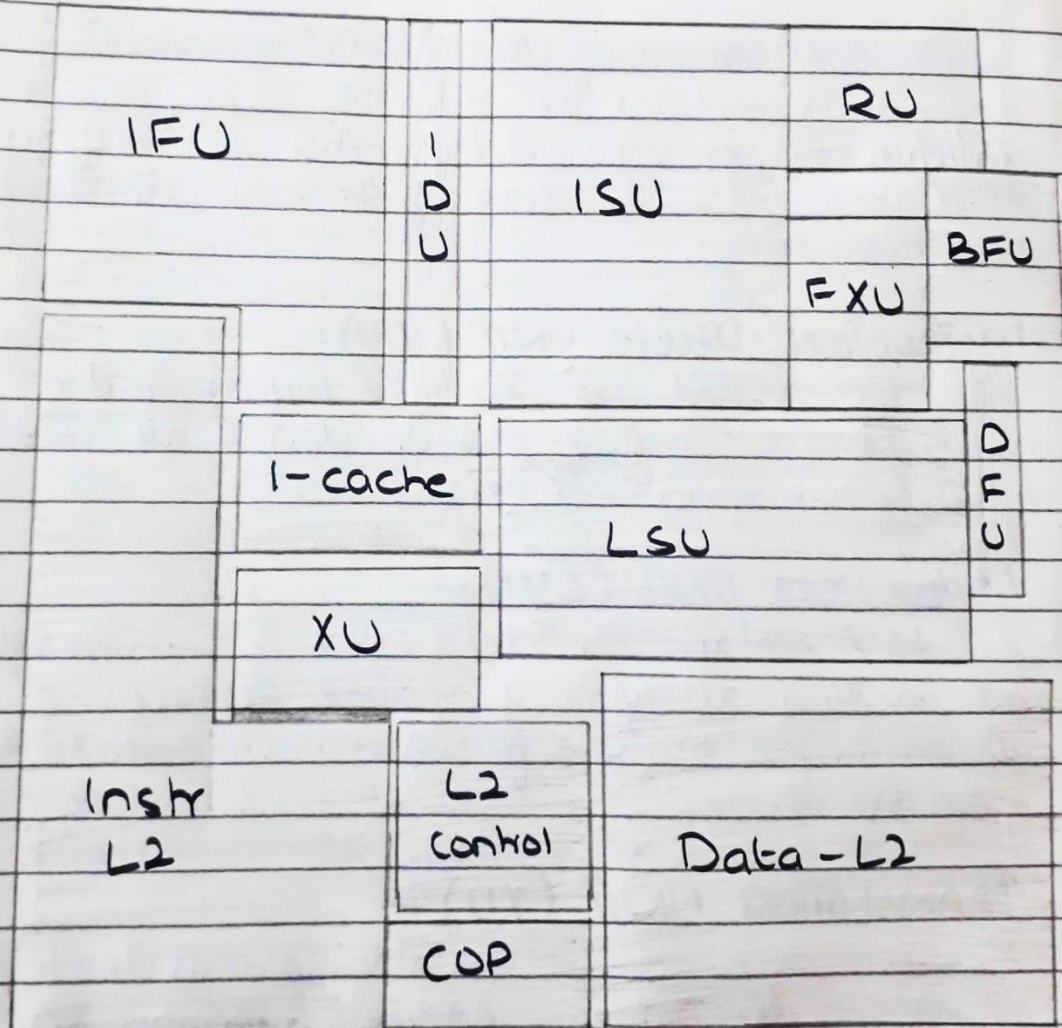 IFU
IDU
ISU
RU
FXU
BFU
I-cache
LSU
DFU
XU
Instr
L2
L2
control
Data-L2
COP